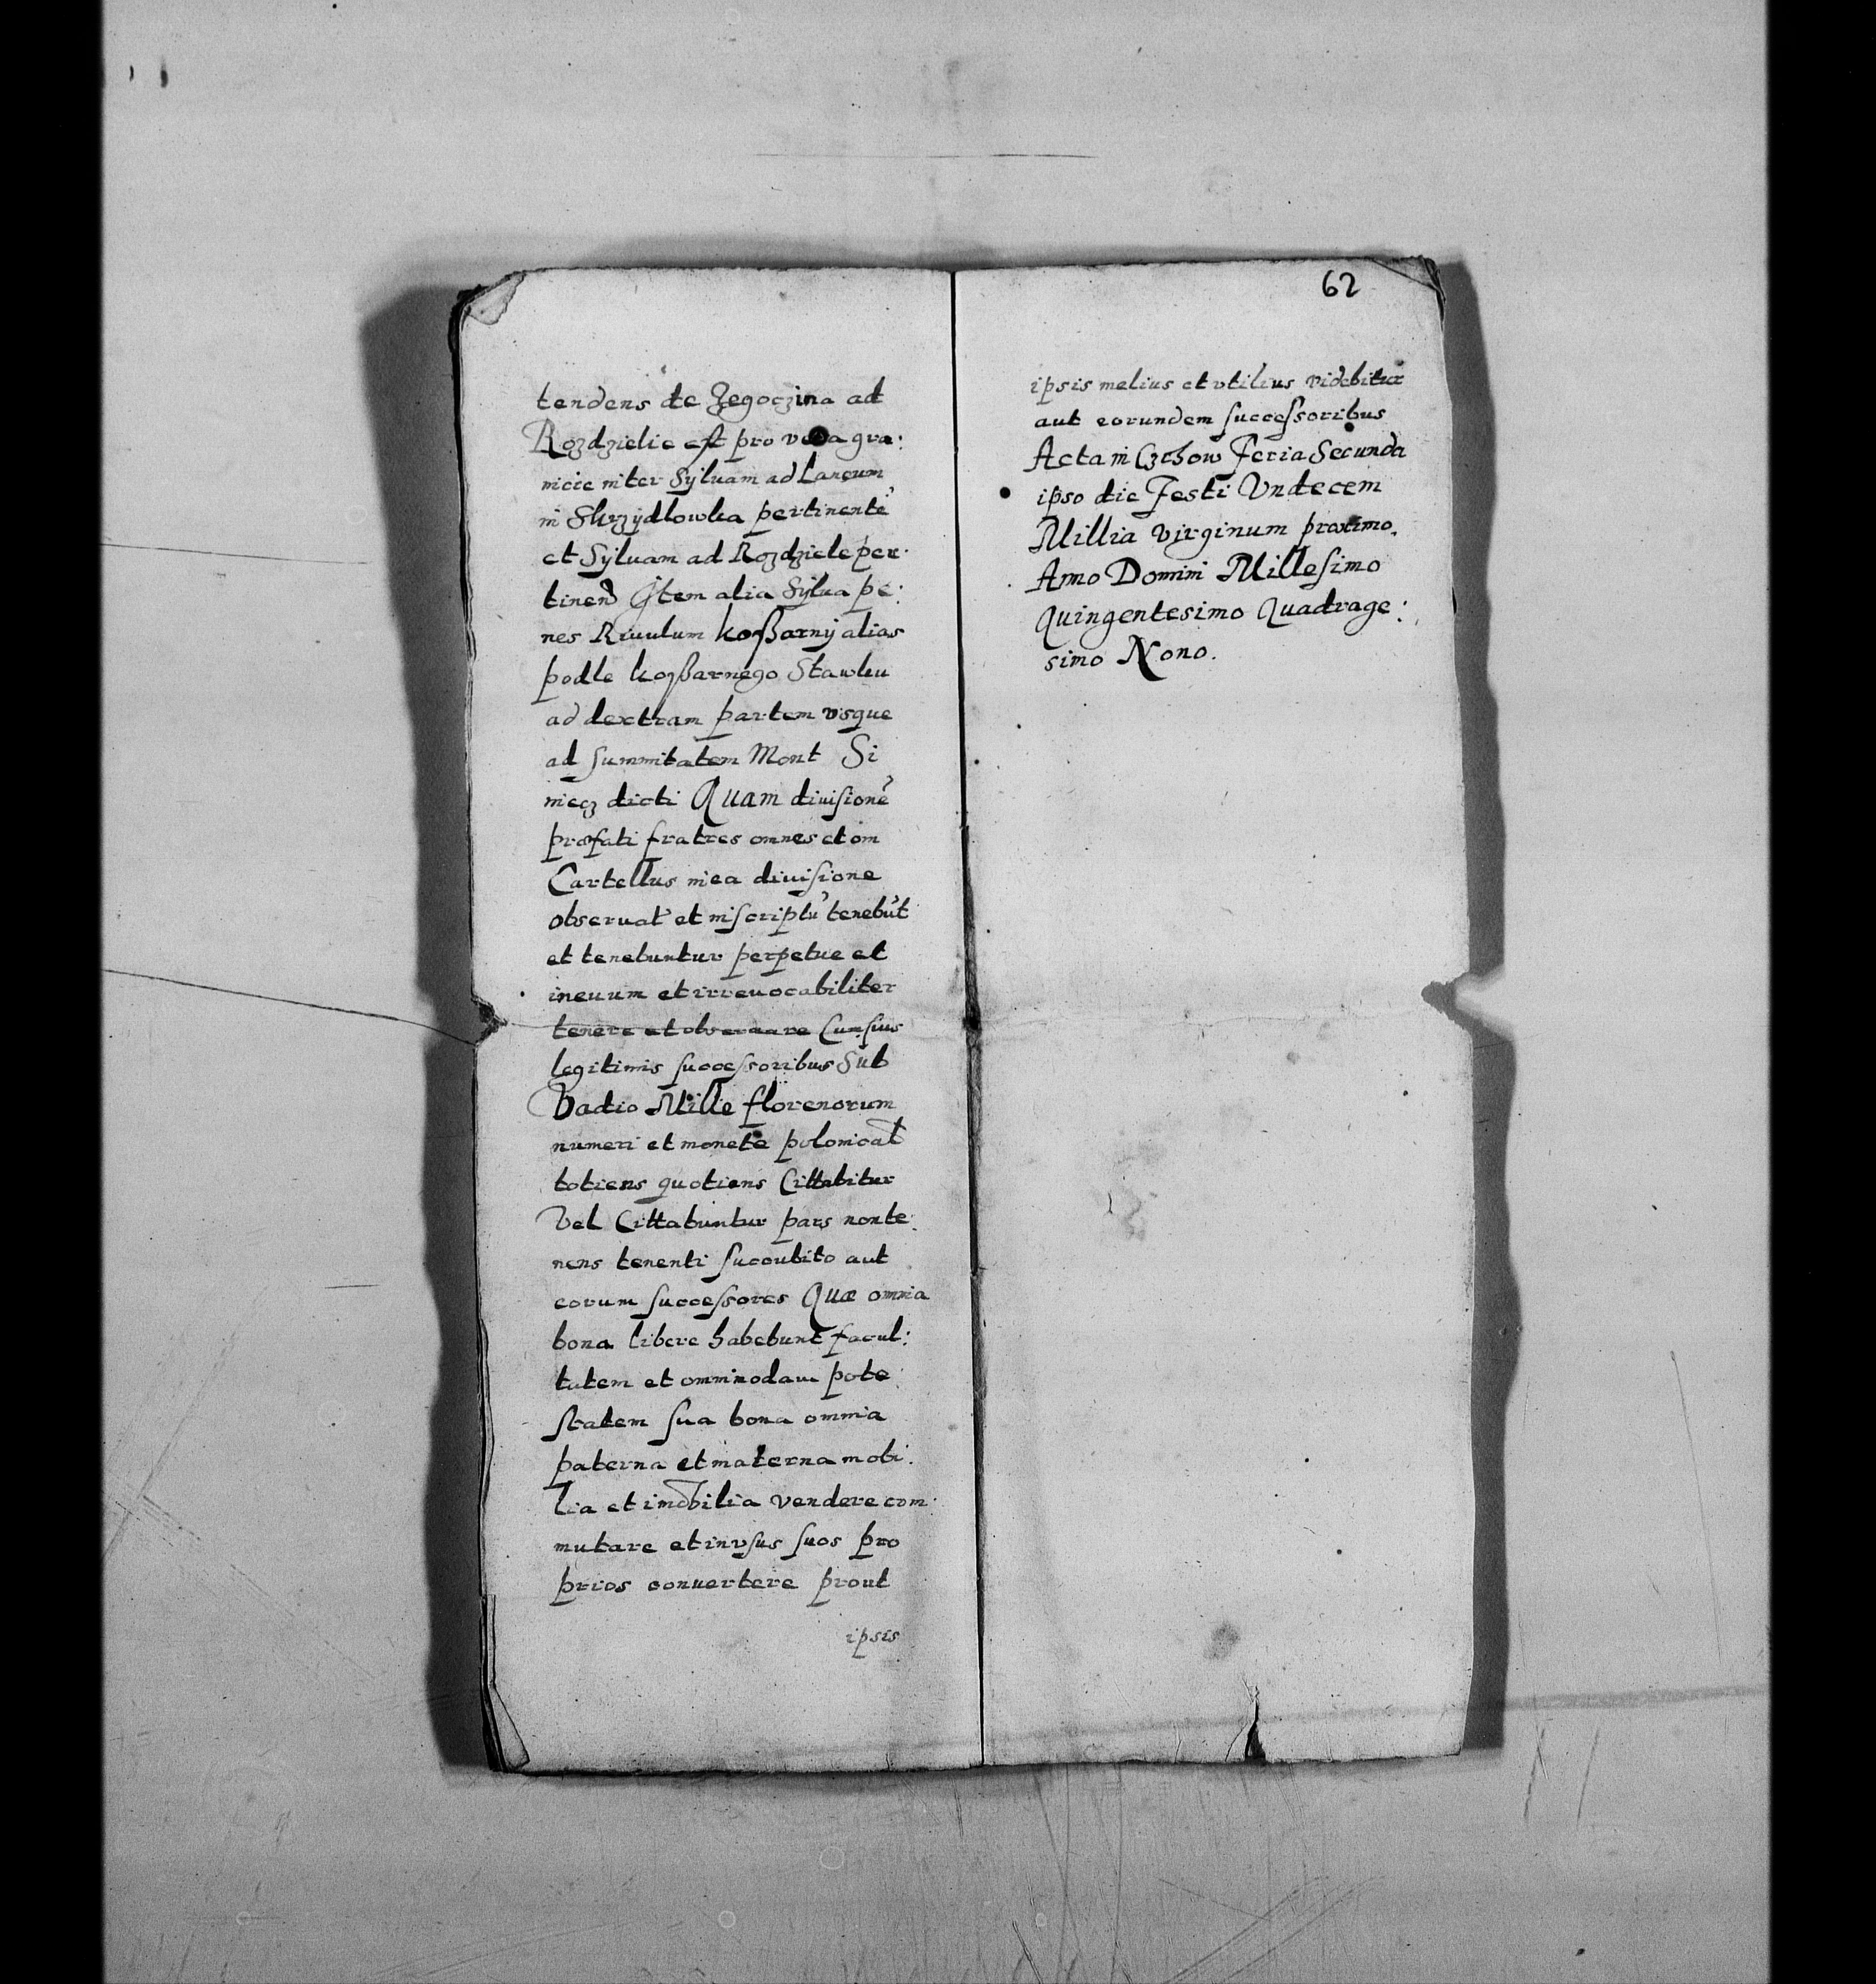 tendens de Zegoczina ad
Rozdzielie est pro vera gra:
nicie inter Sylvam ad Laneum
in Skrzydlowka pertinentē
et Syluam ad Rozdziele per:
tinen Item alia Sylua pe:
nes Riuulum koßarny alias
podle koßarnego Stawku
ad dextram partem vsque
ad summitatem Mont Si
niecz dicti Quam diuisionē
præfati fratres omnes et om
Cartellus in ea diuisione
obseruat et inscriptū tenebūt
et tenebuntur perpetue et
ineuum et irreuocabiliter
tenere et obseruare Cum suis
legitimis successoribus Sub
Vadio Mille florenorum
numeri et monete polonical
totiens quotiens Cittabitur
Vel Cittabuntur pars non te:
nens tenenti succubito aut
eorum successores Quæ omnia
bona libere habebunt facul:
tatem et ommimodam pote:
statem sua bona omnia
paterna et materna mobi:
lia et imobilia vendere com:
mutare et in vsus suos pro
prios conuertere prout
ipsis
62
ipsis melius et vtilius videbitur
aut eorundem successoribus
Acta in Czchow Feria Secunda
ipso die Festi Vndecem
Millia virginum proximo.
Anno Domini Millesimo
Quingentesimo Quadrage:
simo Nono.